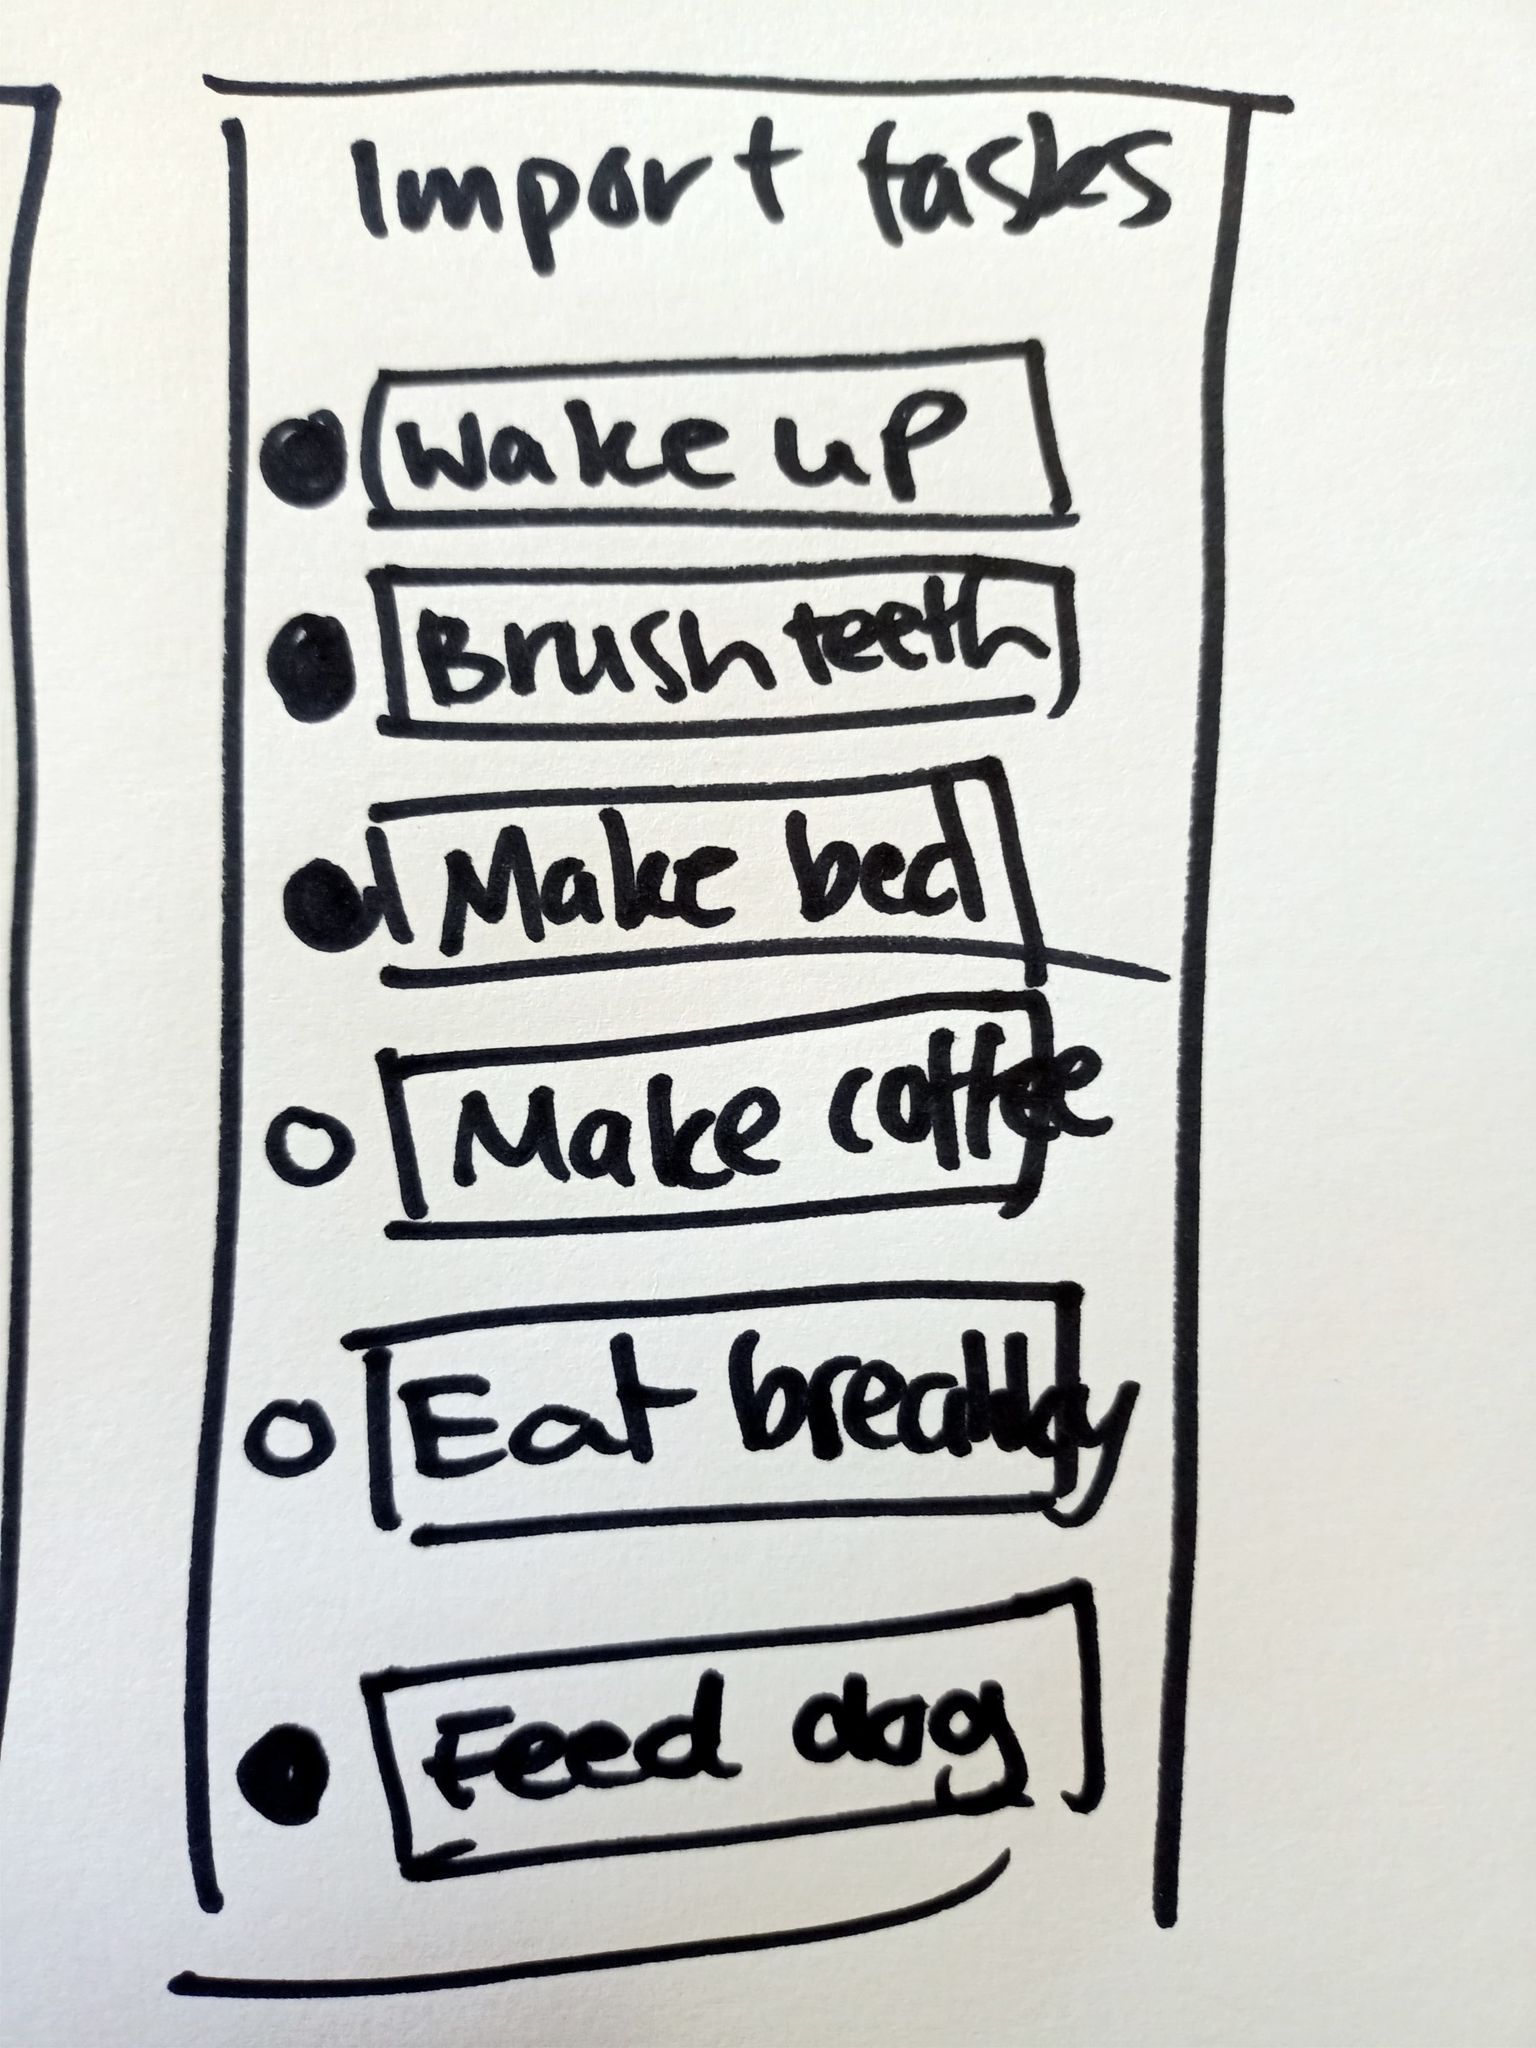 Import tasks
Wake up
Brush teeth
Make bed
Make coffee
Eat
Feed dog